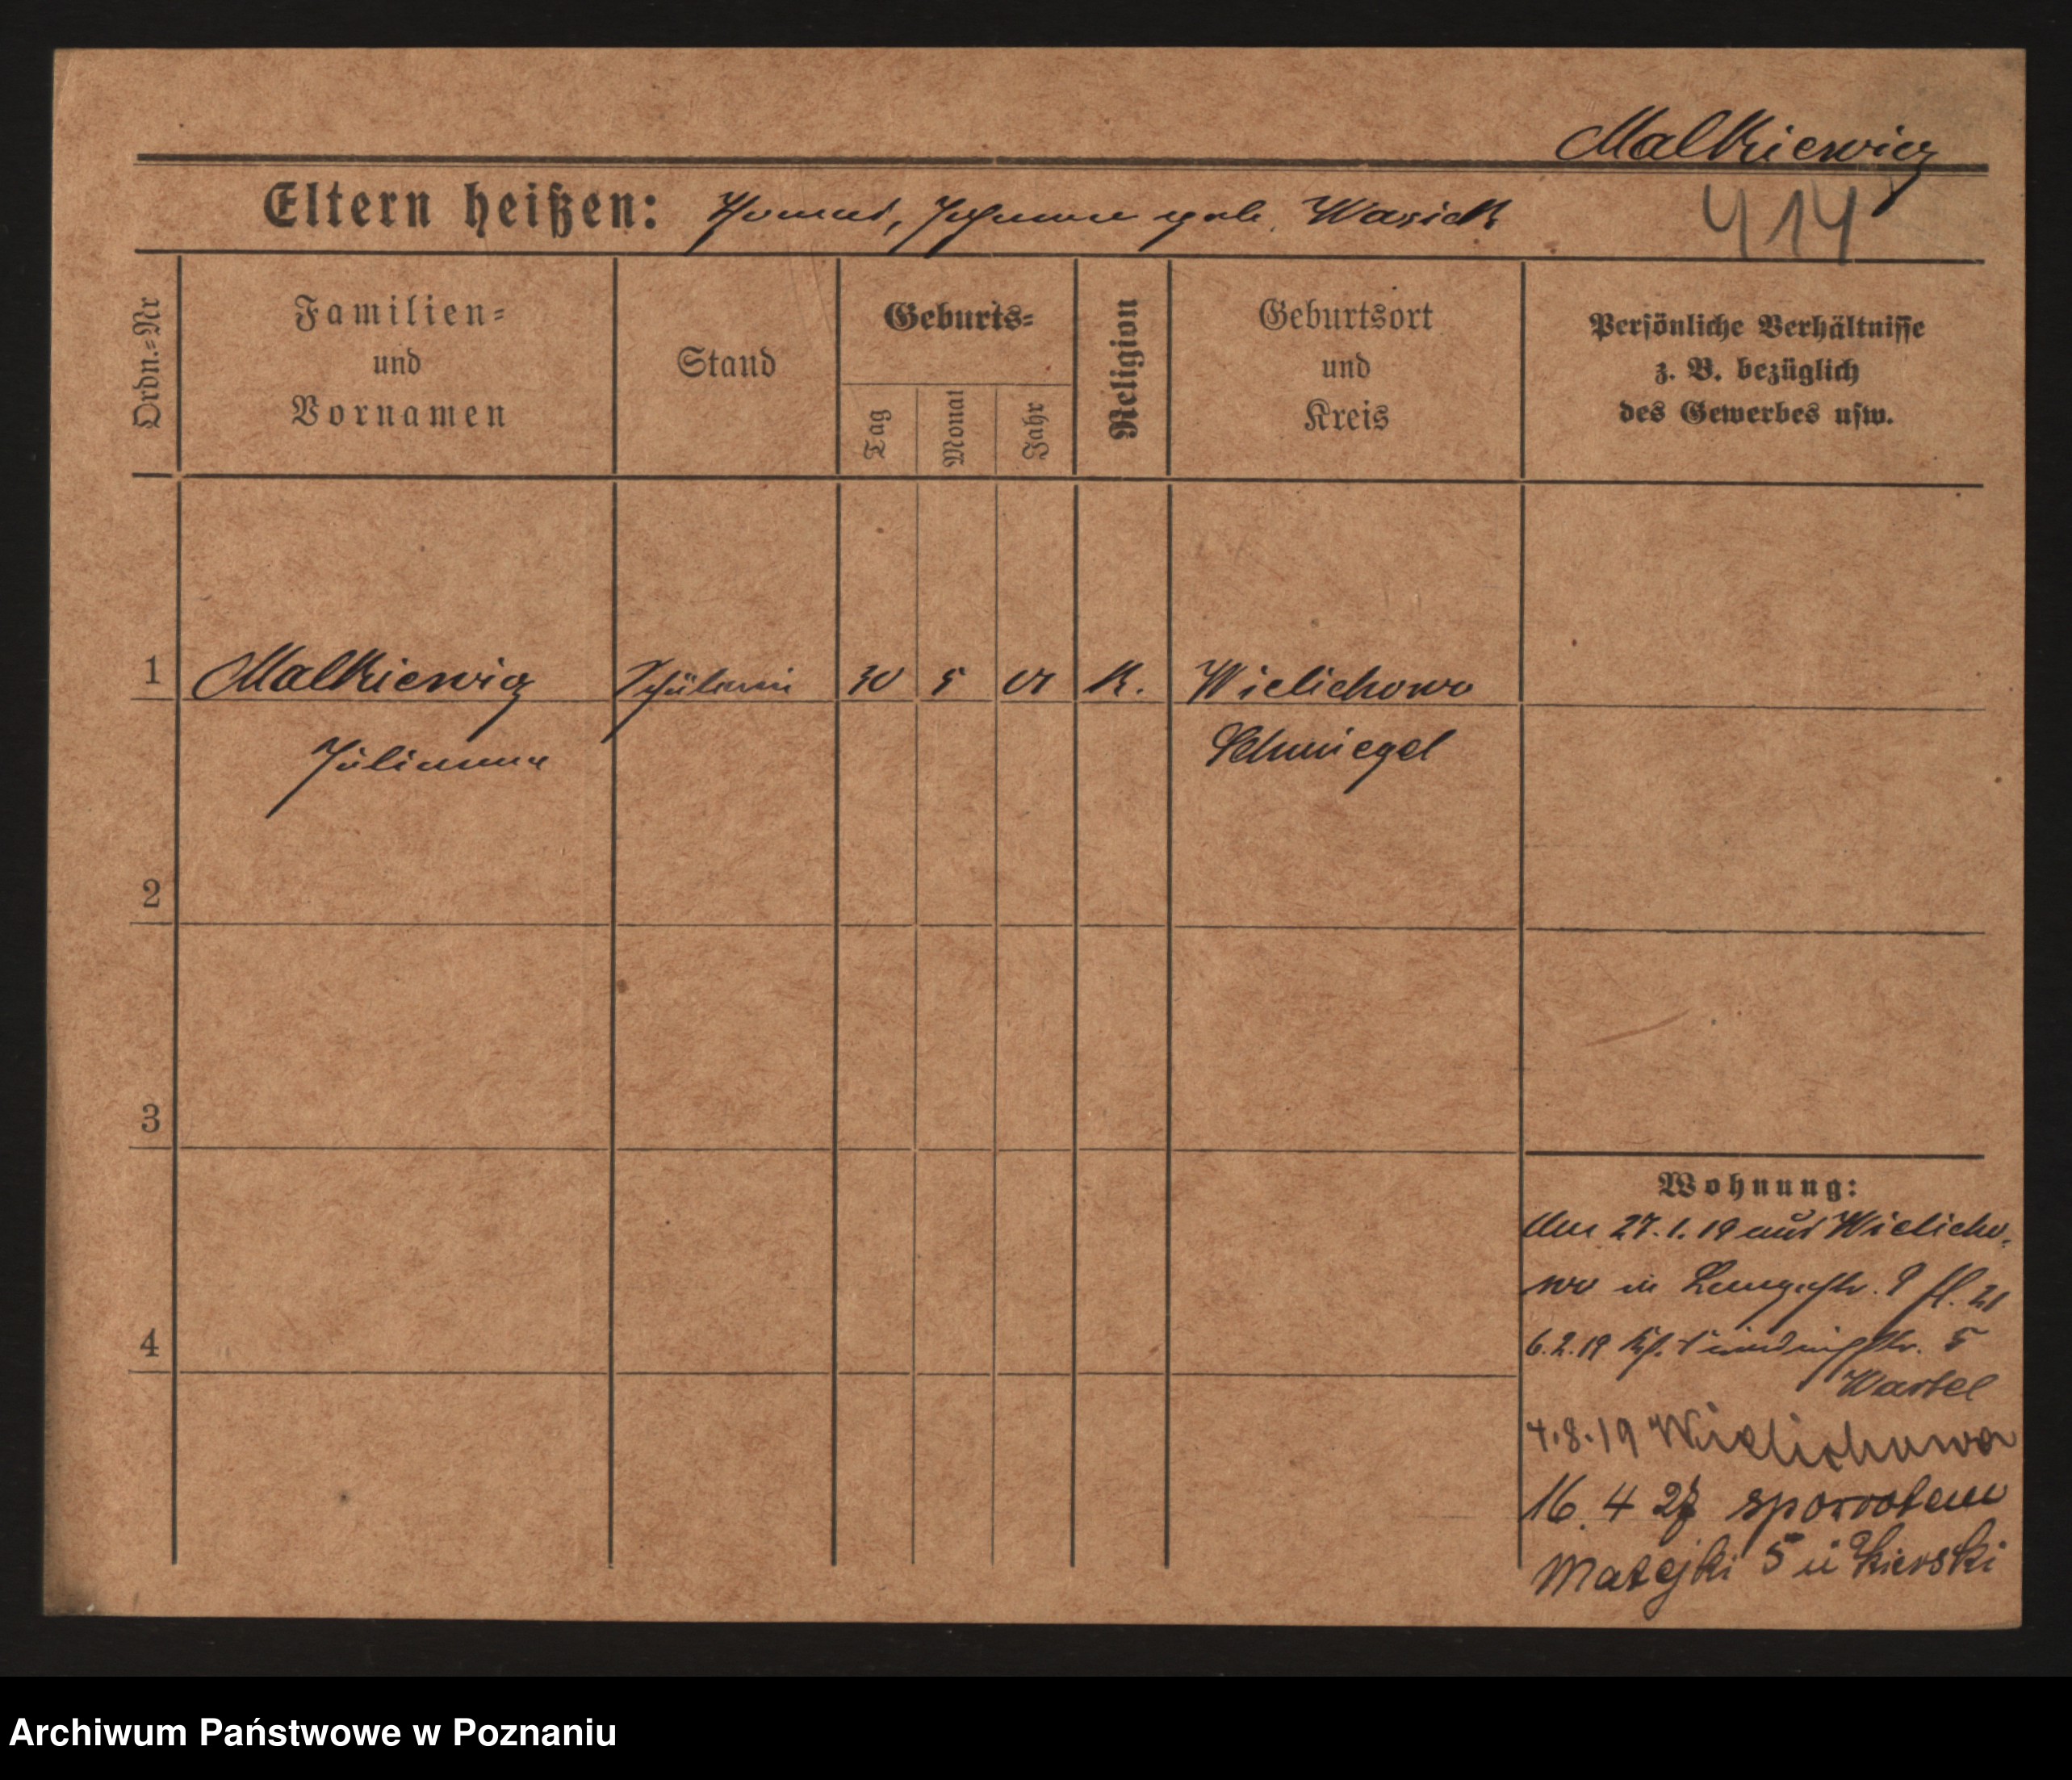 Malkiewicz
Eltern heißen: Thomas, Johanna geb. Wasiek
414
Ordn.-Nr
Familien-
und
Vornamen
Stand
Geburts-
Tag
Monat
Jahr
Religion
Geburtsort
und
Kreis
Persönliche Verhältnisse
z. B. bezüglich
des Gewerbes usw.
1 Malkiewicz Schülerin 30 5 01 K. Wielichowo
Julianna Schmiegel
2
3
4
Wohnung:
Am 27.1.19 aus Wielicho-
wo in Langestr. 9
6.2.19 5
Wartel
4.8.19 Wielichowo
16. 4 27 spowrotem
Matejki 5 u
Archiwum Państwowe w Poznaniu